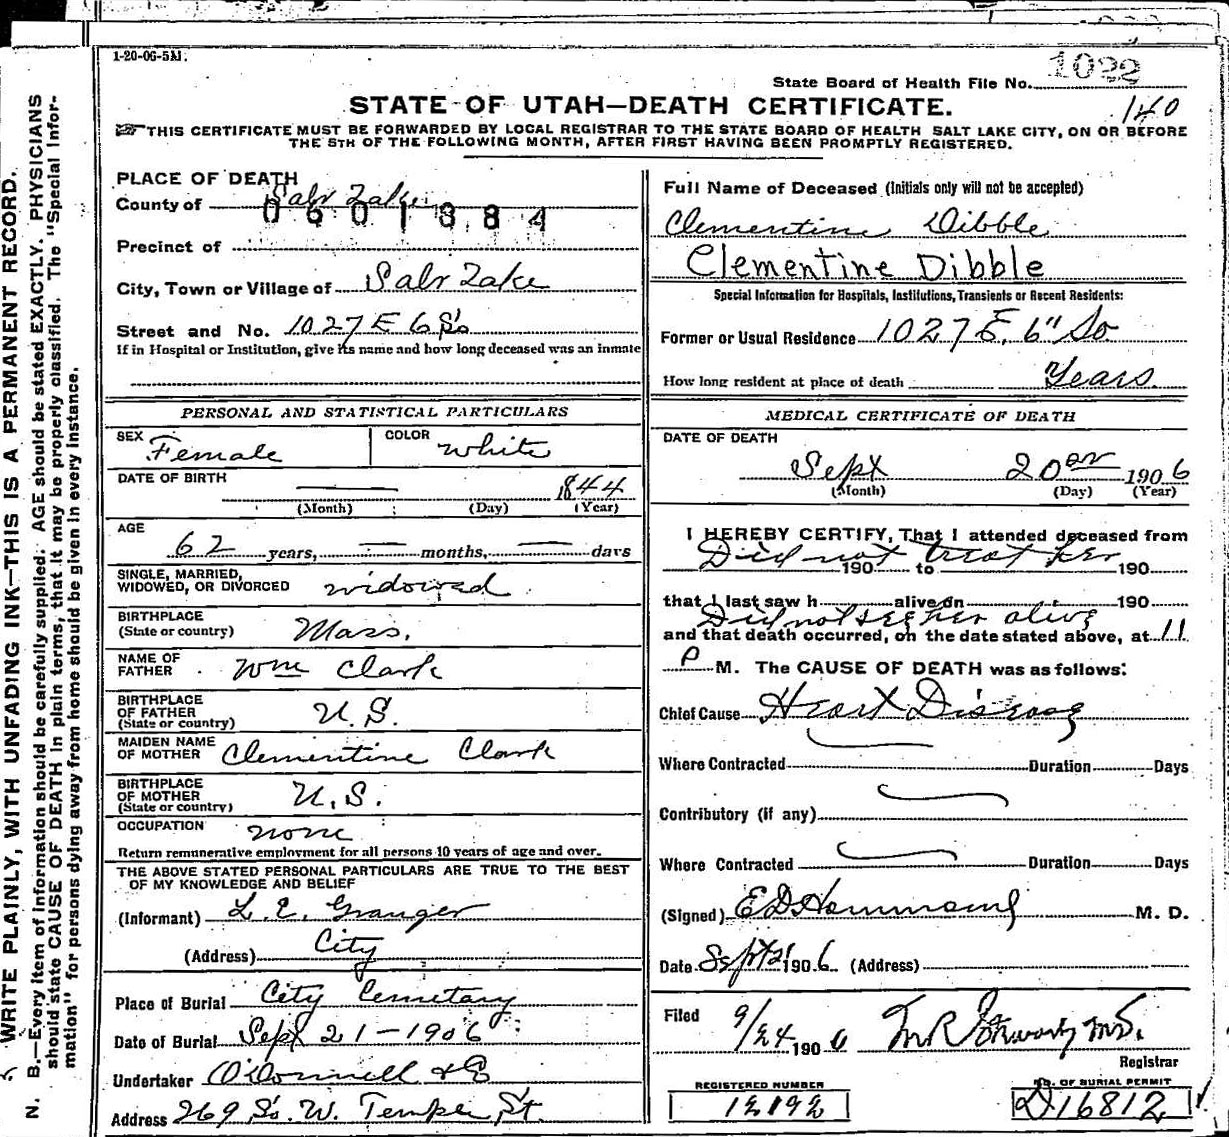 1-20-06-5M.
State Board of Health File No. 1022
140
STATE OF UTAH—DEATH CERTIFICATE.
THIS CERTIFICATE MUST BE FORWARDED BY LOCAL REGISTRAR TO THE STATE BOARD OF HEALTH SALT LAKE CITY, ON OR BEFORE
THE 5TH OF THE FOLLOWING MONTH, AFTER FIRST HAVING BEEN PROMPTLY REGISTERED.
PLACE OF DEATH
County of Salt Lake
0601384
Precinct of
City, Town or Village of Salt Lake
Street and No. 1027 E 6 So
If in Hospital or Institution, give its name and how long deceased was an inmate
PERSONAL AND STATISTICAL PARTICULARS
SEX Female COLOR White
DATE OF BIRTH — 1844
(Month) (Day) (Year)
AGE
62 years, — months, — days
SINGLE, MARRIED,
WIDOWED, OR DIVORCED widowed
BIRTHPLACE
(State or country) Mass.
NAME OF
FATHER Wm Clark
BIRTHPLACE
OF FATHER
(State or country) U.S.
MAIDEN NAME
OF MOTHER Clementine Clark
BIRTHPLACE
OF MOTHER
(State or country) U.S.
OCCUPATION none
Return remunerative employment for all persons 10 years of age and over.
THE ABOVE STATED PERSONAL PARTICULARS ARE TRUE TO THE BEST
OF MY KNOWLEDGE AND BELIEF
(Informant) L. E. Granger
(Address) City
Place of Burial City Cemetary
Date of Burial Sept 21-1906
Undertaker O'Donnell & Co
Address 269 So. W. Temple St.
Full Name of Deceased (Initials only will not be accepted)
Clementine Dibble
Clementine Dibble
Special Information for Hospitals, Institutions, Transients or Recent Residents:
Former or Usual Residence 1027 E. 6" So.
How long resident at place of death Years
MEDICAL CERTIFICATE OF DEATH
DATE OF DEATH
Sept 20 1906
(Month) (Day) (Year)
I HEREBY CERTIFY, That I attended deceased from
Did not treat her
190 to 190
that I last saw h alive on 190
Did not see her alive
and that death occurred, on the date stated above, at 11
P M. The CAUSE OF DEATH was as follows:
Chief Cause Heart Disease
Where Contracted Duration Days
Contributory (if any)
Where Contracted Duration Days
(Signed) E D Hammond M. D.
Date Sept 21 1906 (Address)
Filed 9/24 1906
Registrar
REGISTERED NUMBER
12192
NO. OF BURIAL PERMIT
D16812
N. B.—Every item of information should be carefully supplied. AGE should be stated EXACTLY. PHYSICIANS
should state CAUSE OF DEATH in plain terms, that it may be properly classified. The "Special Infor-
mation" for persons dying away from home should be given in every instance.
WRITE PLAINLY, WITH UNFADING INK—THIS IS A PERMANENT RECORD.